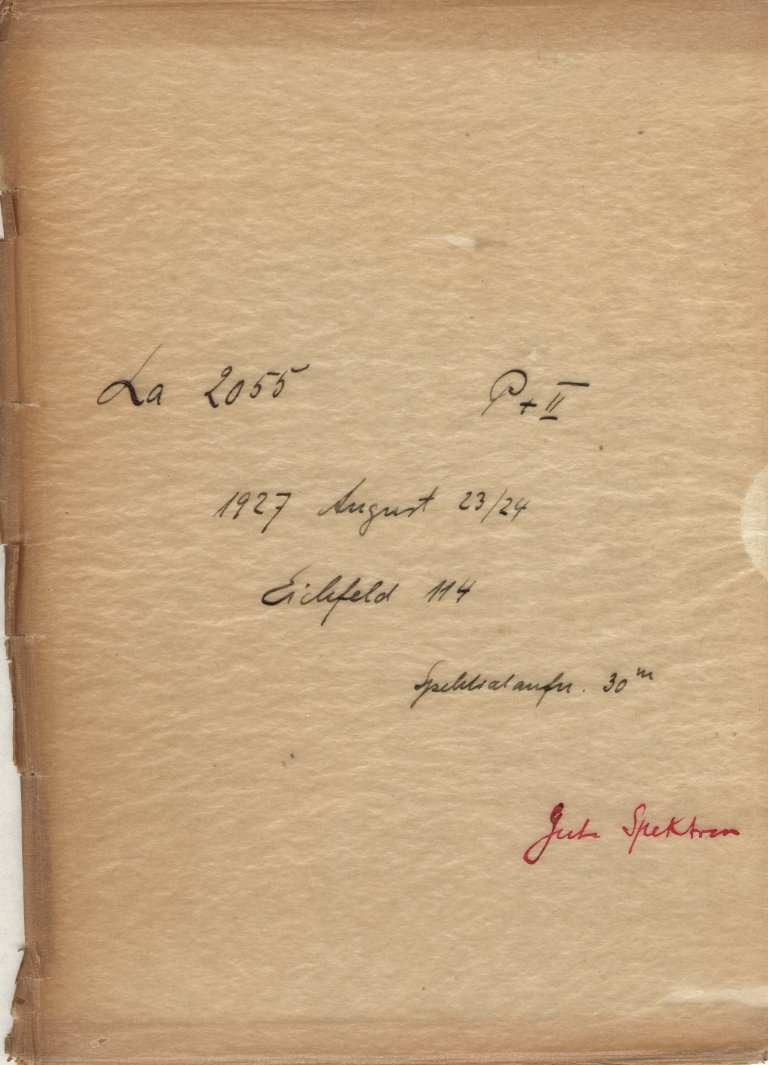 La 2055 P + II
1927 August 23/24
Eichfeld 114
Spektralaufn. 30 m
Gute Spektren